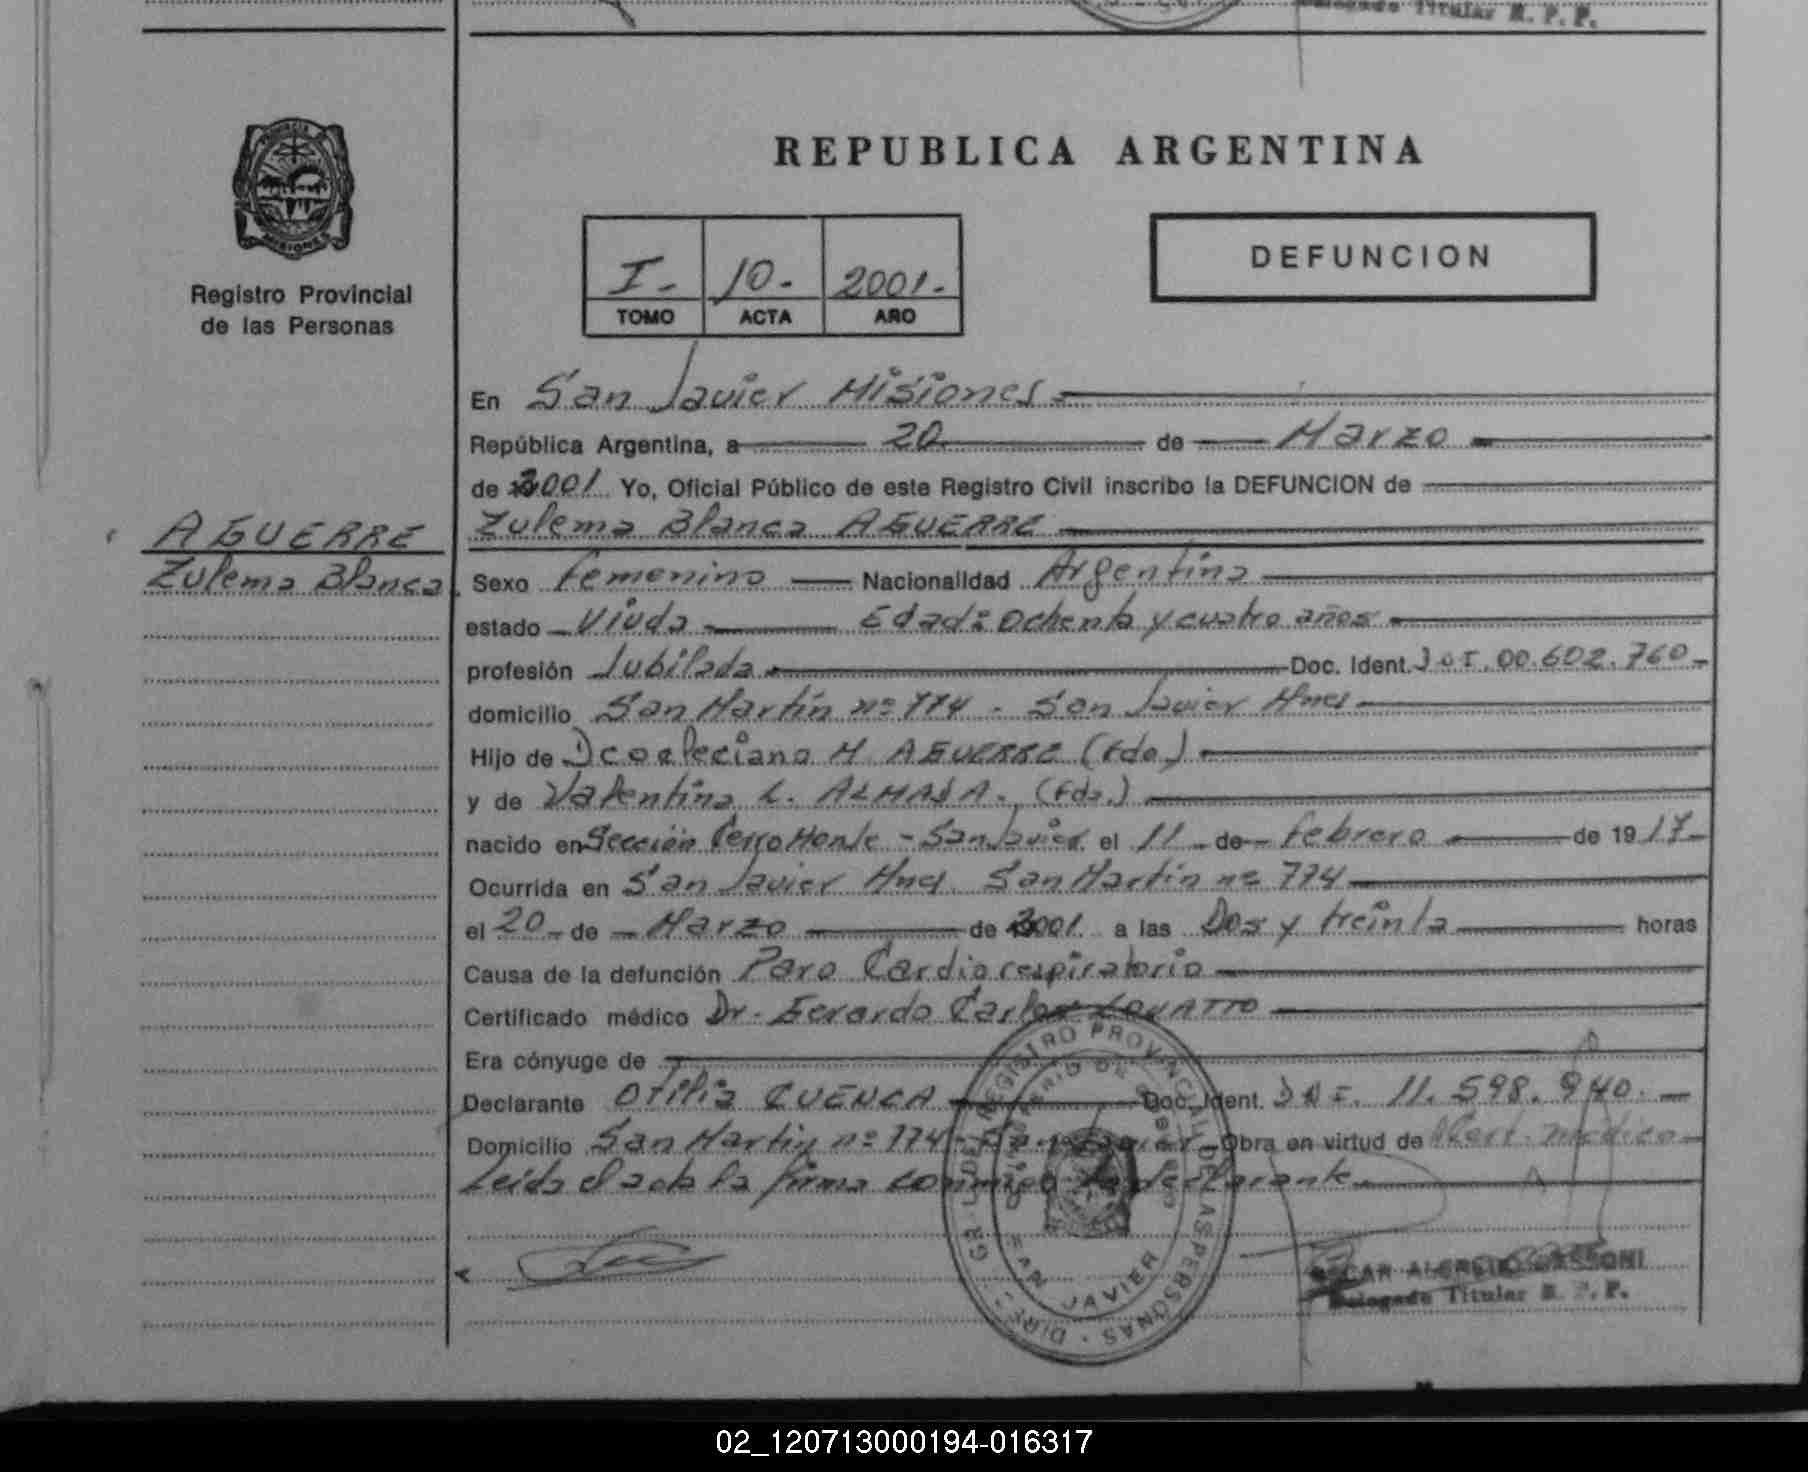 Delegado Titular R. P. P.
PROVINCIA DE
MISIONES
Registro Provincial
de las Personas
REPUBLICA ARGENTINA
I.- 10.- 2001.-
TOMO ACTA AÑO
DEFUNCION
En San Javier Misiones
República Argentina, a 20 de Marzo
de 2001 Yo, Oficial Público de este Registro Civil inscribo la DEFUNCION de
Zulema Blanca AGUERRE
AGUERRE
Zulema Blanca
Sexo Femenino Nacionalidad Argentina
estado Viuda Edad: Ochenta y cuatro años
profesión Jubilada Doc. Ident. 00.602.760
domicilio San Martín nº 774 - San Javier Mnes
Hijo de M AGUERRE (fdo.)
y de Valentina L. ALMADA. (fda.)
nacido en Sección Cerro Monte - San Javier el 11 de Febrero de 1917
Ocurrida en San Javier Mnes. San Martín nº 774
el 20 de Marzo de 2001 a las Dos y treinta horas
Causa de la defunción Paro Cardiorespiratorio
Certificado médico Dr. Gerardo Carlos LOVATTO
Era cónyuge de
Declarante Otilia CUENCA Doc. Ident. DNI. 11.598.940.
Domicilio San Martin nº 774 - San Javier - Obra en virtud de Cert. médico
Leída el acta la firma conmigo la declarante
REGISTRO PROVINCIAL DE LAS PERSONAS
SAN JAVIER
OSCAR ALFREDO
Delegado Titular R. P. P.
02_120713000194-016317